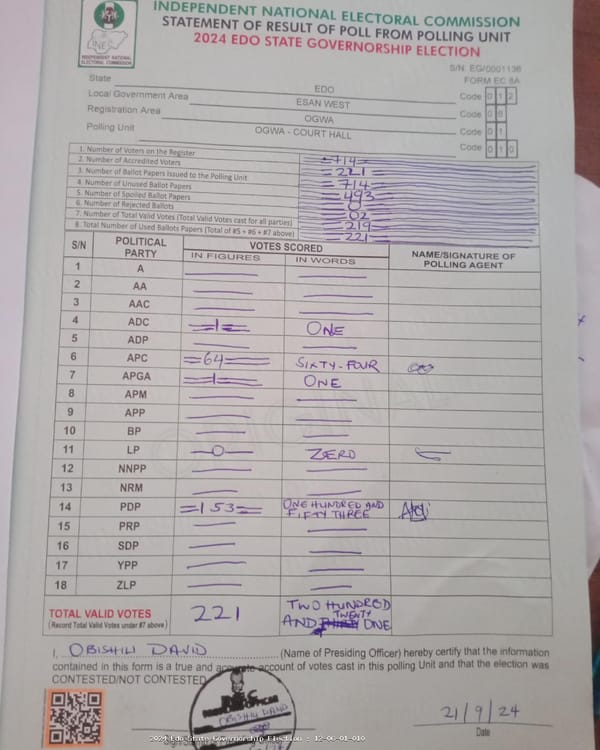 INDEPENDENT NATIONAL ELECTORAL COMMISSION
STATEMENT OF RESULT OF POLL FROM POLLING UNIT
2024 EDO STATE GOVERNORSHIP ELECTION
INEC
INDEPENDENT NATIONAL
ELECTORAL COMMISSION
S/N: EG/0001136
FORM EC 8A
State EDO Code 0 1 2
Local Government Area ESAN WEST Code 0 6
Registration Area OGWA Code 0 1
Polling Unit OGWA - COURT HALL Code 0 1 0
1. Number of Voters on the Register =714=
2. Number of Accredited Voters =221=
3. Number of Ballot Papers Issued to the Polling Unit =714=
4. Number of Unused Ballot Papers =493=
5. Number of Spoiled Ballot Papers 0
6. Number of Rejected Ballots =02
7. Number of Total Valid Votes (Total Valid Votes cast for all parties) =219=
8. Total Number of Used Ballots Papers (Total of #5 + #6 + #7 above) =221=
S/N POLITICAL PARTY VOTES SCORED NAME/SIGNATURE OF POLLING AGENT
IN FIGURES IN WORDS
1 A
2 AA
3 AAC
4 ADC =1= ONE
5 ADP
6 APC =64= SIXTY-FOUR
7 APGA =1= ONE
8 APM
9 APP
10 BP
11 LP -0- ZERO
12 NNPP
13 NRM
14 PDP =153= ONE HUNDRED AND FIFTY THREE
15 PRP
16 SDP
17 YPP
18 ZLP
TOTAL VALID VOTES 221 TWO HUNDRED AND TWENTY ONE
(Record Total Valid Votes under #7 above)
I, OBISHILI DAVID (Name of Presiding Officer) hereby certify that the information
contained in this form is a true and accurate account of votes cast in this polling Unit and that the election was
CONTESTED/NOT CONTESTED
OBISHILI DAVID
21/9/24
Date
2024 Edo State Governorship Election : 12-06-01-010